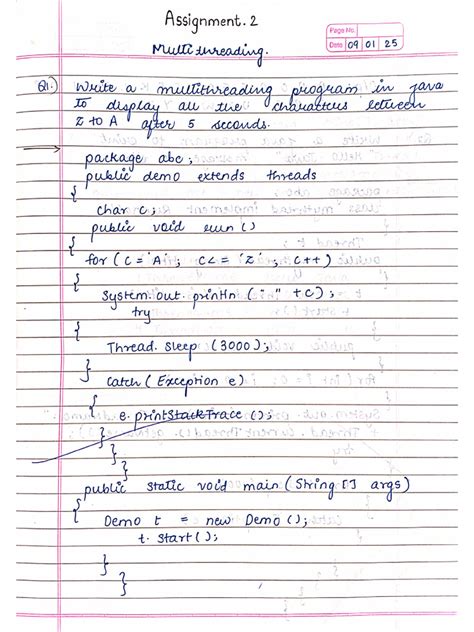 Assignment. 2
Page No.
Date 09 01 25
Multi threading.
Q1.) Write a multithreading program in java
to display all the characters between
Z to A after 5 seconds.
→ package abc;
public demo extends threads
{
char c;
public void run ()
{
for ( c = 'A'; c <= 'Z'; c++)
{
System.out.println (" " + c);
try
{
Thread. sleep (3000);
}
catch ( Exception e)
{
e. printStackTrace ();
}
}
}
public static void main ( String [] args)
{
Demo t = new Demo ();
t. start ();
}
}